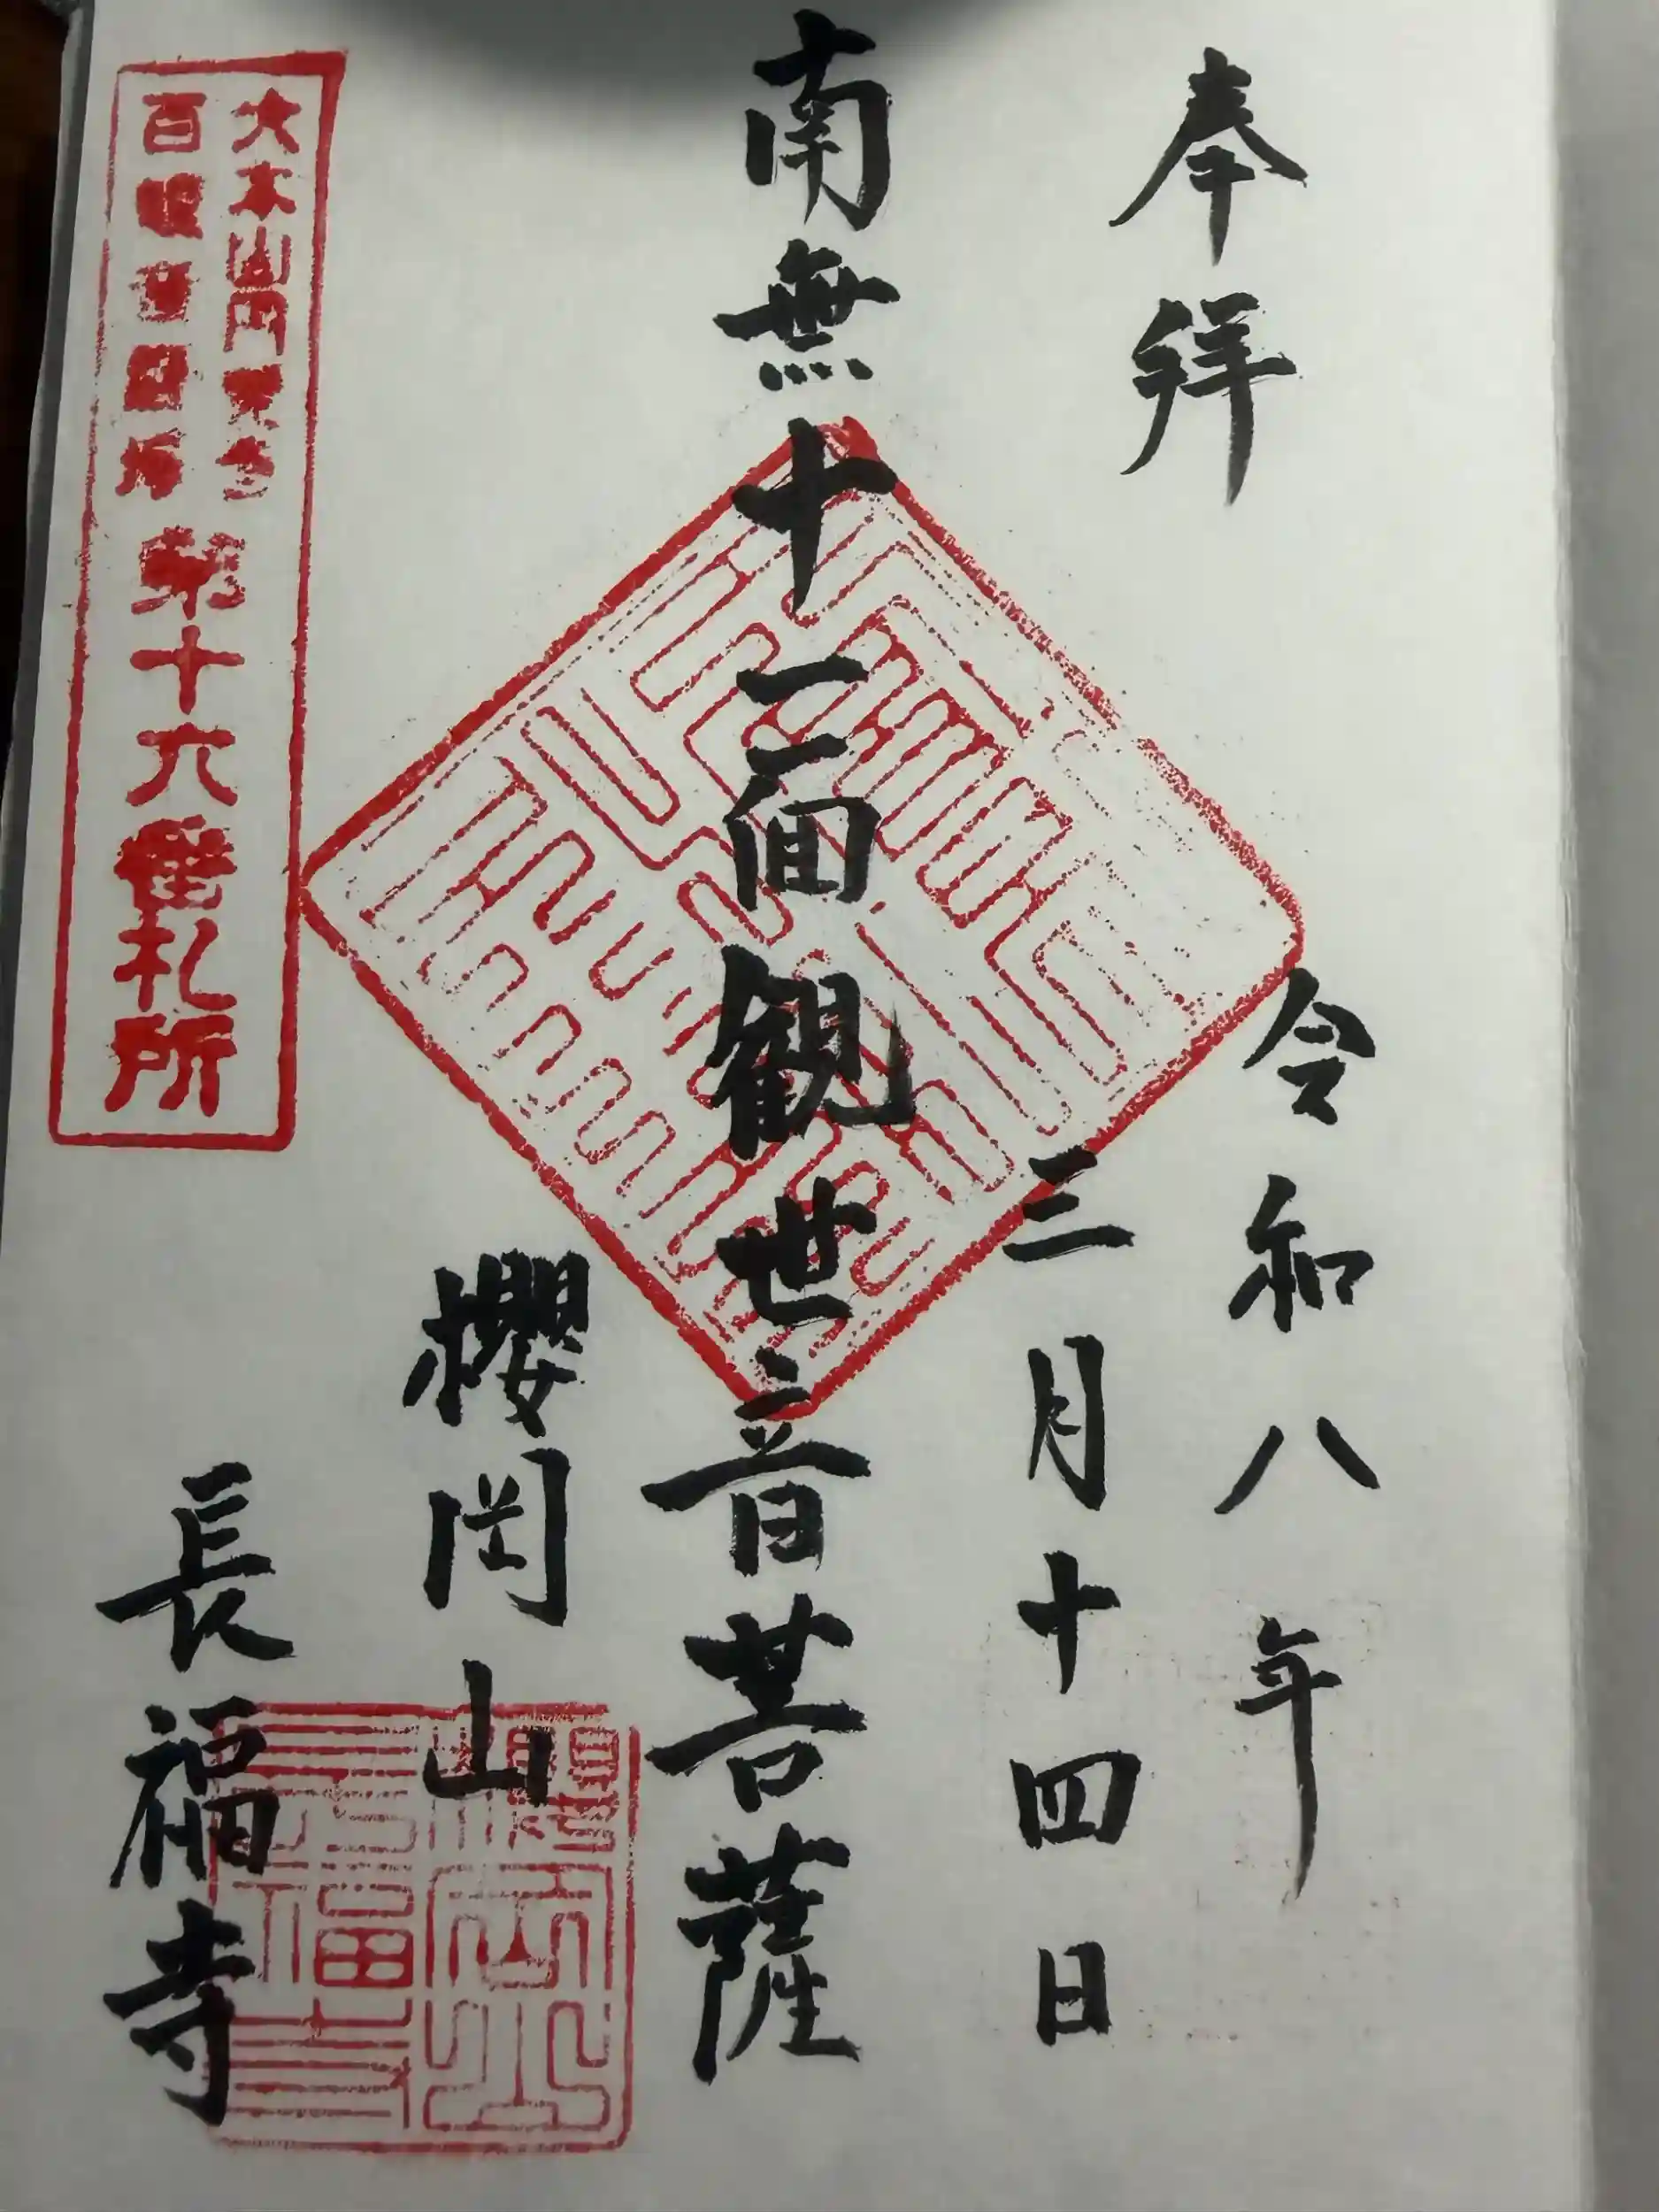 奉拝
令和八年
三月十四日
南無十一面観世音菩薩
櫻岡山
長福寺
大本山円覚寺
百観音霊場
第十六番札所
櫻岡山
長福寺